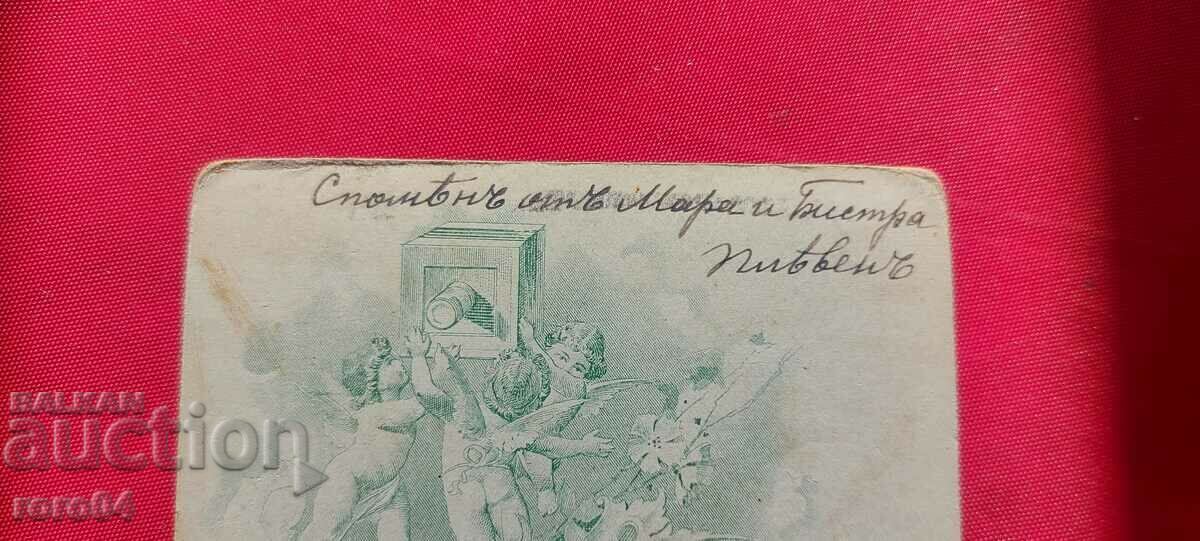 Спомѣнъ отъ Мара и Бистра
Плѣвенъ
BALKAN
auction
roro64